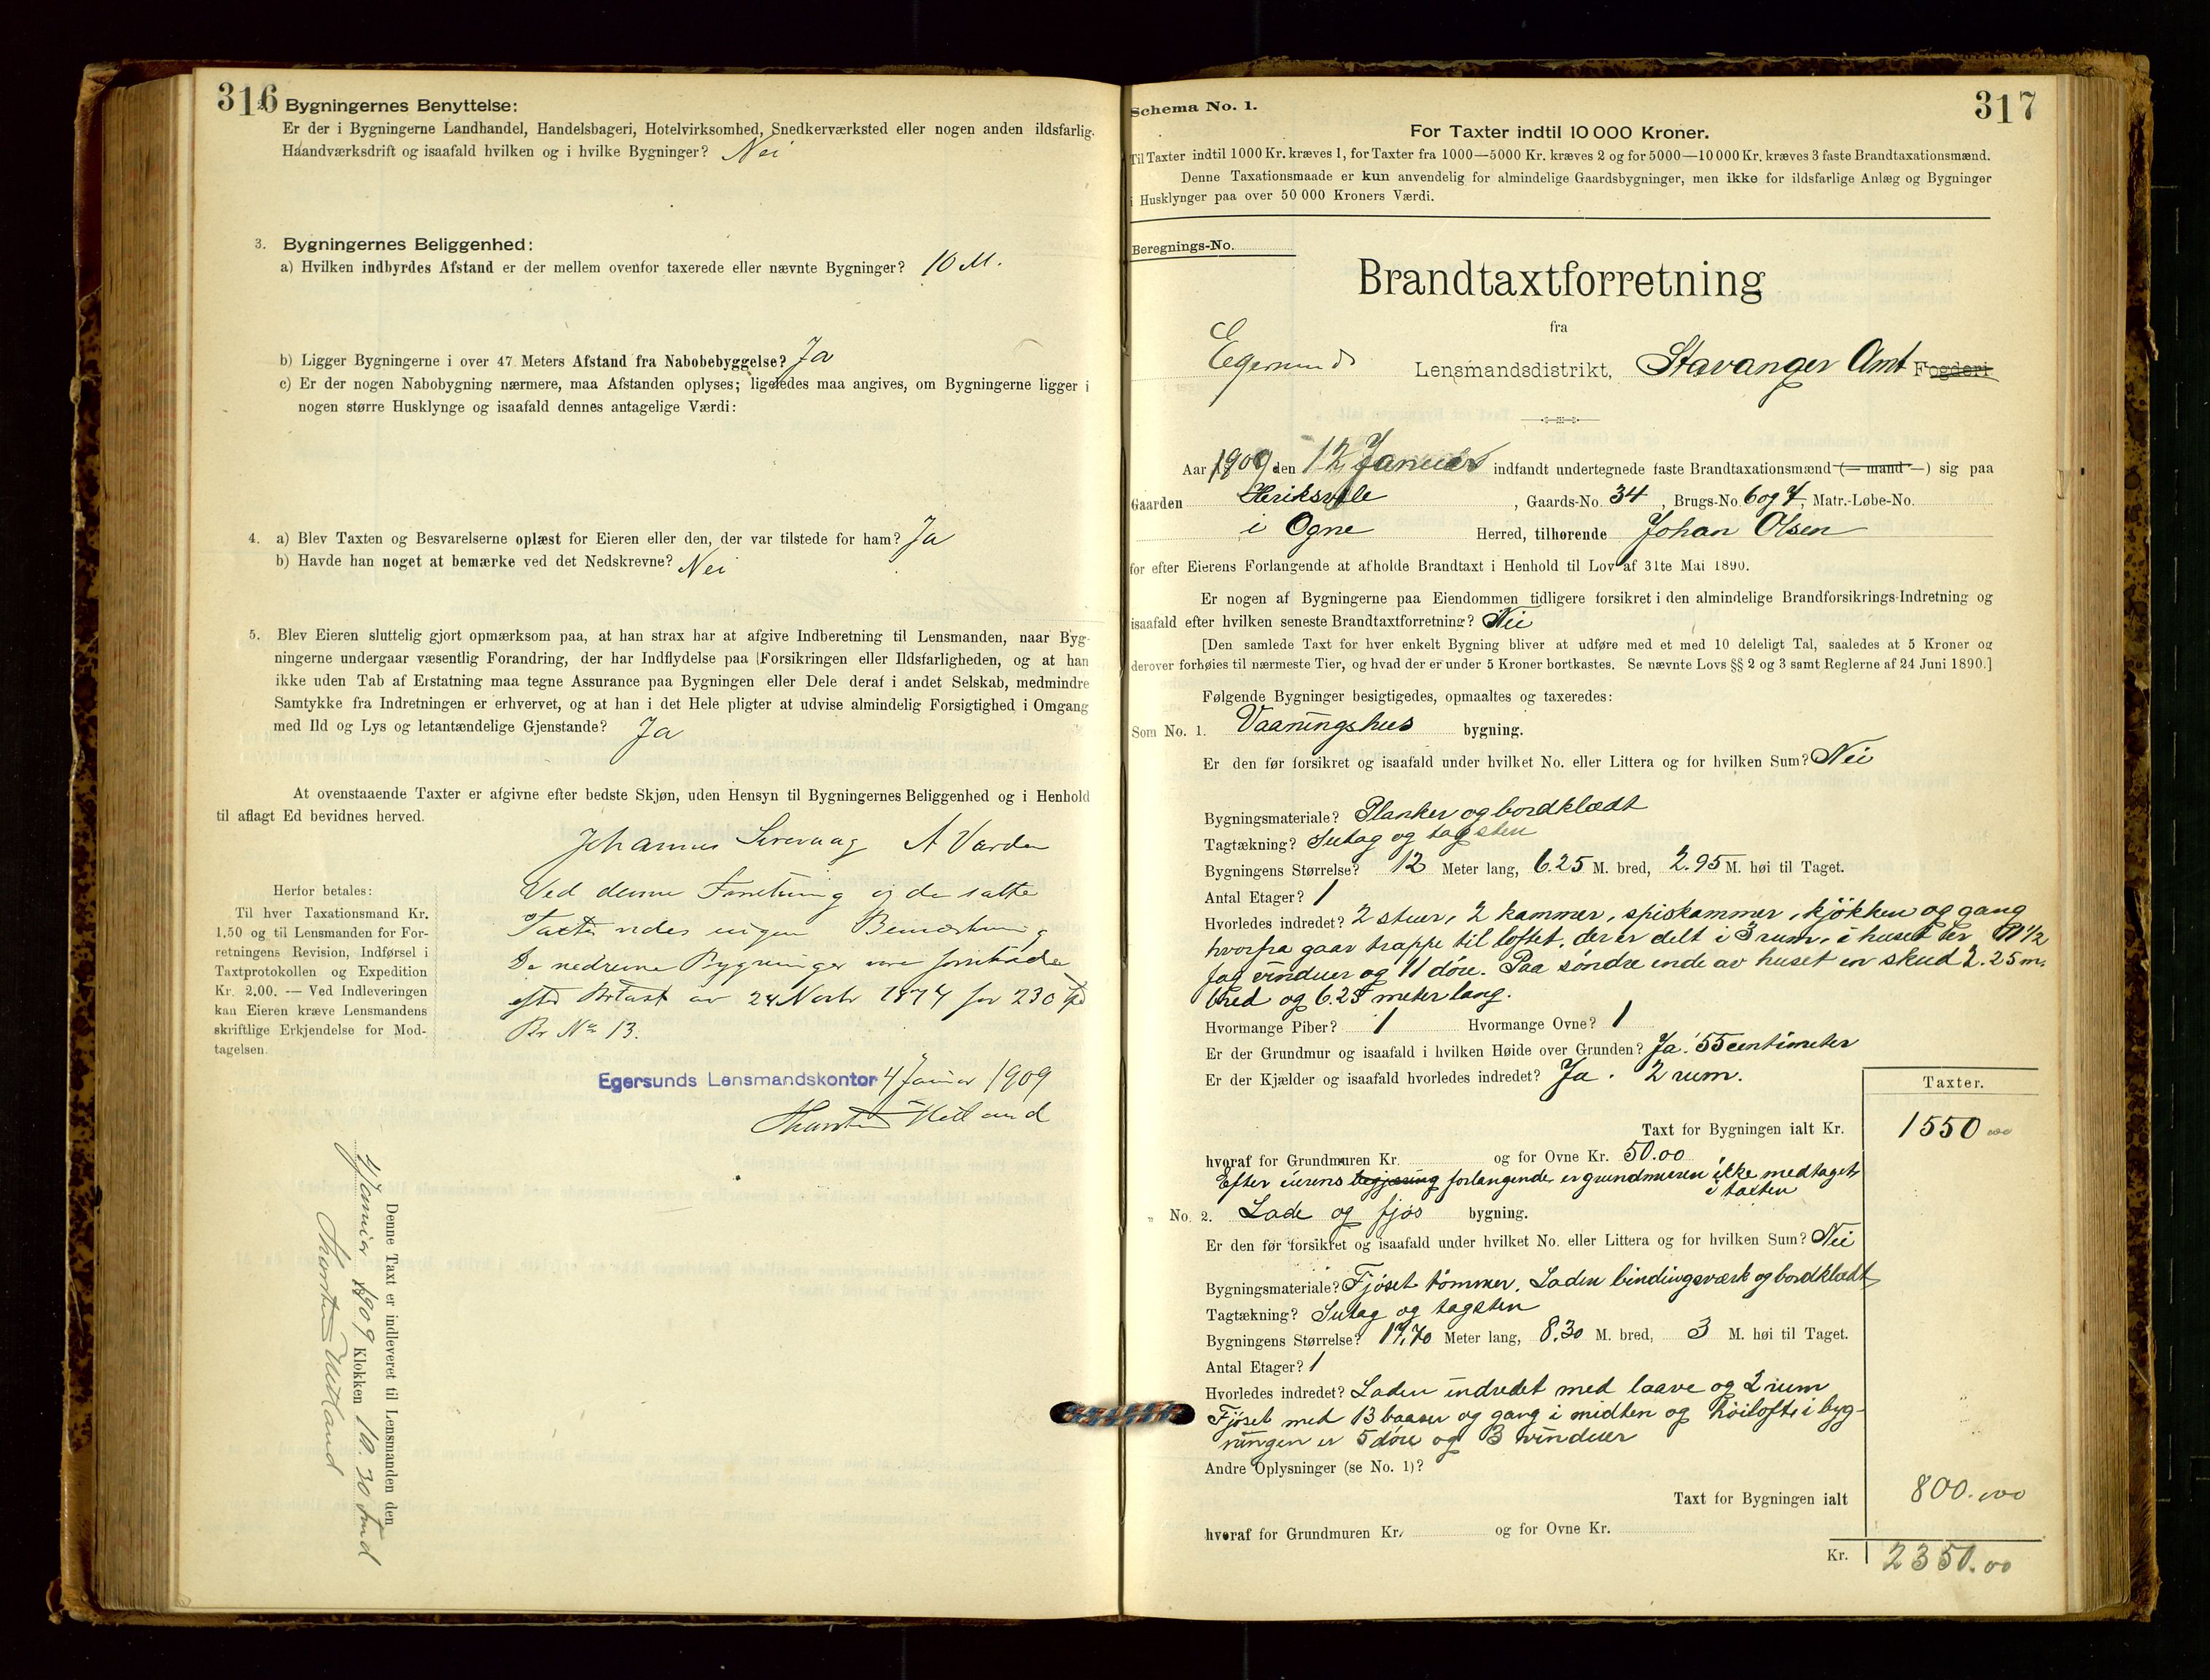 316 Bygningernes Benyttelse:
Er der i Bygningerne Landhandel, Handelsbageri, Hotelvirksomhed, Snedkerværksted eller nogen anden ildsfarlig.
Haandværksdrift og isaafald hvilken og i hvilke Bygninger? Nei
3. Bygningernes Beliggenhed:
a) Hvilken indbyrdes Afstand er der mellem ovenfor taxerede eller nævnte Bygninger? 10 M.
b) Ligger Bygningerne i over 47 Meters Afstand fra Nabobebyggelse? Ja
c) Er der nogen Nabobygning nærmere, maa Afstanden oplyses; ligeledes maa angives, om Bygningerne ligger i
nogen større Husklynge og isaafald dennes antagelige Værdi:
4. a) Blev Taxten og Besvarelserne oplæst for Eieren eller den, der var tilstede for ham? Ja
b) Havde han noget at bemærke ved det Nedskrevne? Nei
5. Blev Eieren sluttelig gjort opmærksom paa, at han strax har at afgive Indberetning til Lensmanden, naar Byg-
ningerne undergaar væsentlig Forandring, der har Indflydelse paa Forsikringen eller Ildsfarligheden, og at han
ikke uden Tab af Erstatning maa tegne Assurance paa Bygningen eller Dele deraf i andet Selskab, medmindre
Samtykke fra Indretningen er erhvervet, og at han i det Hele pligter at udvise almindelig Forsigtighed i Omgang
med Ild og Lys og letantændelige Gjenstande? Ja
At ovenstaaende Taxter er afgivne efter bedste Skjøn, uden Hensyn til Bygningernes Beliggenhed og i Henhold
til aflagt Ed bevidnes herved.
Johannes Sirevaag A Varden
Herfor betales:
Til hver Taxationsmand Kr.
1.50 og til Lensmanden for For-
retningens Revision, Indførsel i
Taxtprotokollen og Expedition
Kr. 2.00. — Ved Indleveringen
kan Eieren kræve Lensmandens
skriftlige Erkjendelse for Mod-
tagelsen.
Ved denne Forretning og de satte
Taxter vides ingen Bemærkning
De nedrevne Bygninger var forsikrede
efter Br.taxt av 24 Novbr 1874 for 230
Br No 13.
Egersunds Lensmandskontor 4 Januar 1909
Thorsten
Denne Taxt er indleveret til Lensmanden den
4 Januar 1909 Klokken 10.30
Thorsten
Schema No. 1. 317
For Taxter indtil 10 000 Kroner.
Til Taxter indtil 1000 Kr. kræves 1, for Taxter fra 1000—5000 Kr. kræves 2 og for 5000—10 000 Kr. kræves 3 faste Brandtaxationsmænd.
Denne Taxationsmaade er kun anvendelig for almindelige Gaardsbygninger, men ikke for ildsfarlige Anlæg og Bygninger
i Husklynger paa over 50 000 Kroners Værdi.
Beregnings-No.
Brandtaxtforretning
fra
Egersunds Lensmandsdistrikt, Stavanger Amt Fogderi
Aar 1909 den 12 Januar indfandt undertegnede faste Brandtaxationsmænd (— mand —) sig paa
Gaarden , Gaards-No. 34 , Brugs-No. 6 og 7, Matr.-Løbe-No.
i Ogne Herred, tilhørende Johan Olsen
for efter Eierens Forlangende at afholde Brandtaxt i Henhold til Lov af 31te Mai 1890.
Er nogen af Bygningerne paa Eiendommen tidligere forsikret i den almindelige Brandforsikrings-Indretning og
isaafald efter hvilken seneste Brandtaxtforretning? Nei
[Den samlede Taxt for hver enkelt Bygning bliver at udføre med et med 10 deleligt Tal, saaledes at 5 Kroner og
derover forhøies til nærmeste Tier, og hvad der er under 5 Kroner bortkastes. Se nævnte Lovs §§ 2 og 3 samt Reglerne af 24 Juni 1890.]
Følgende Bygninger besigtigedes, opmaaltes og taxeredes:
Som No. 1. Vaaningshus bygning.
Er den før forsikret og isaafald under hvilket No. eller Littera og for hvilken Sum? Nei
Bygningsmateriale? Planker og bordklædt
Tagtækning? Sutag og tagsten
Bygningens Størrelse? 12 Meter lang, 6.25 M. bred, 2.95 M. høi til Taget.
Antal Etager? 1
Hvorledes indredet? 2 stuer, 2 kammer, spiskammer, kjøkken og gang
hvorfra gaar trappe til loftet, der er delt i 3 rum, i huset er 11 1/2
fag vinduer og 11 døre. Paa søndre ende av huset en skud 2.25 m.
bred og 6.25 meter lang.
Hvormange Piber? 1 Hvormange Ovne? 1
Er der Grundmur og isaafald i hvilken Høide over Grunden? Ja. 55 centimeter
Er der Kjælder og isaafald hvorledes indredet? Ja. 2 rum.
Taxter.
Taxt for Bygningen ialt Kr. 1550
hvoraf for Grundmuren Kr. og for Ovne Kr. 50.00
Efter eierens begjæring forlangende er grundmuren ikke medtaget
i taxten
„ No. 2. Lade og fjøs bygning.
Er den før forsikret og isaafald under hvilket No. eller Littera og for hvilken Sum? Nei
Bygningsmateriale? Fjøset tømmer. Laden bindingsværk og bordklædt
Tagtækning? Sutag og tagsten
Bygningens Størrelse? 17,70 Meter lang, 8.30 M. bred, 3 M. høi til Taget.
Antal Etager? 1
Hvorledes indredet? Laden indredet med laave og 2 rum
Fjøset med 13 baaser og gang i midten og høiloft, i byg-
ningen er 5 døre og 3 vinduer
Andre Oplysninger (se No. 1)?
Taxt for Bygningen ialt 800.00
hvoraf for Grundmuren Kr. og for Ovne Kr.
Kr. 2350.00